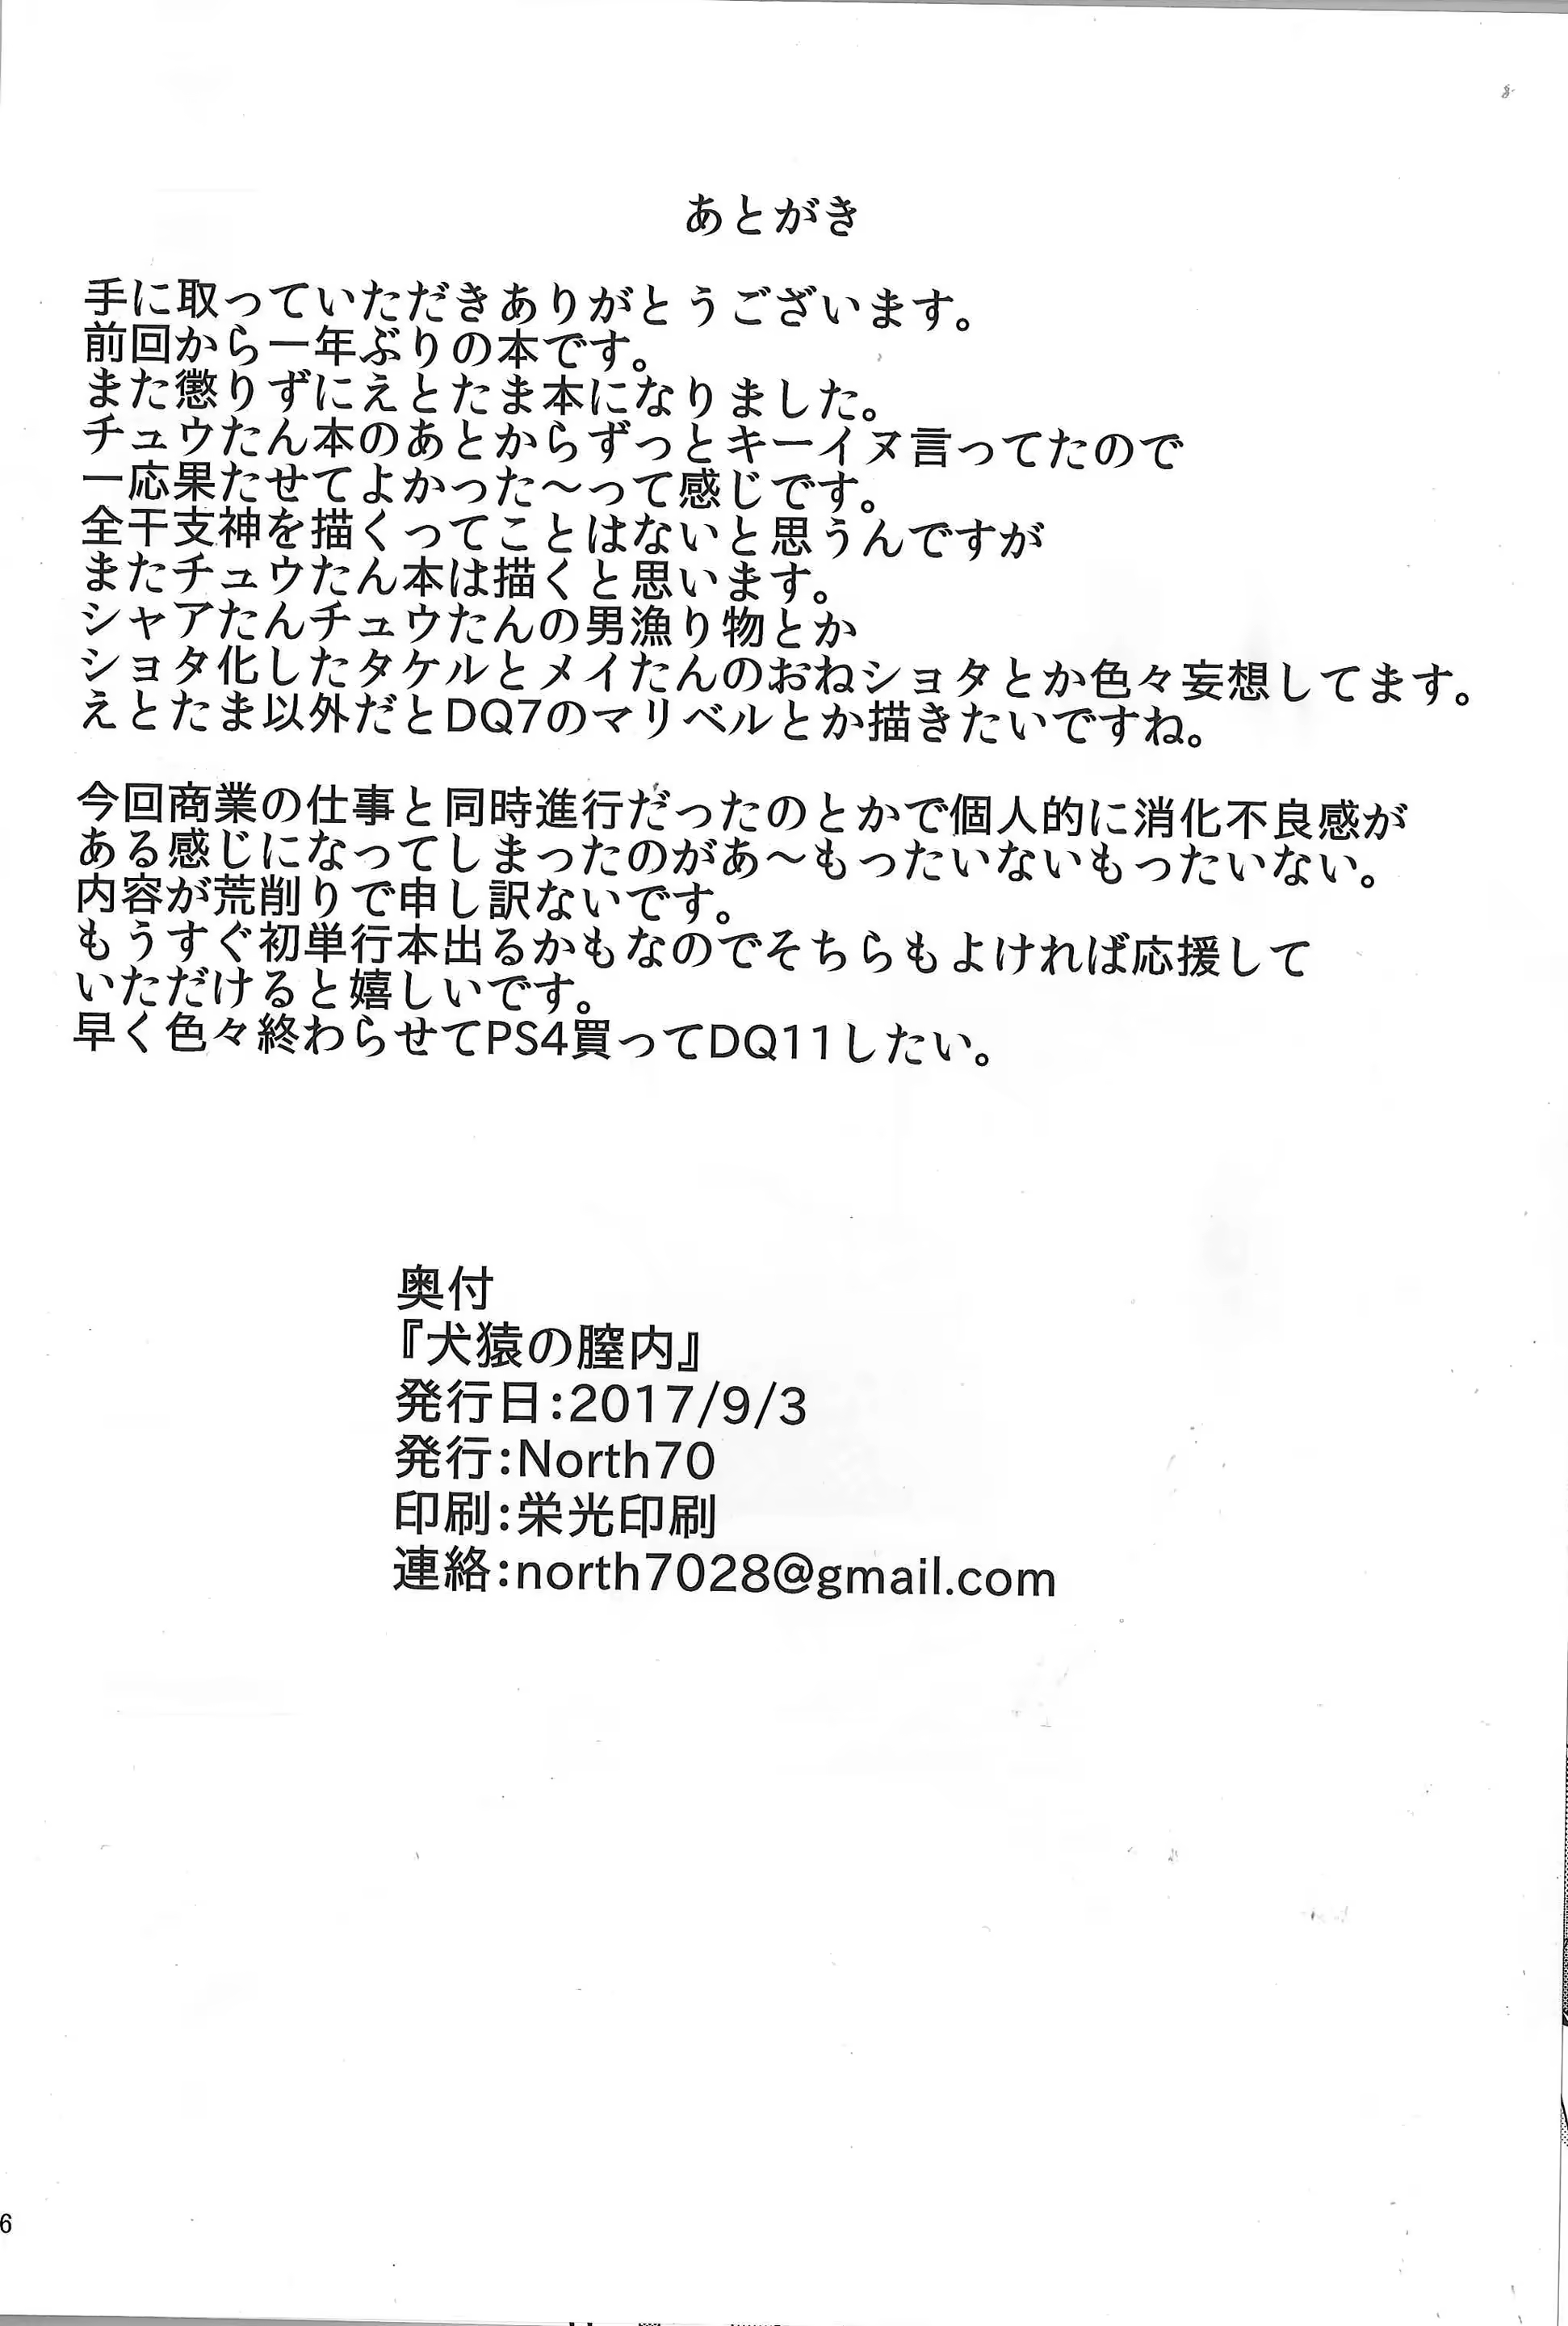 あとがき
手に取っていただきありがとうございます。
前回から一年ぶりの本です。
また懲りずにえとたま本になりました。
チュウたん本のあとからずっとキーイヌ言ってたので
一応果たせてよかった～って感じです。
全干支神を描くってことはないと思うんですが
またチュウたん本は描くと思います。
シャアたんチュウたんの男漁り物とか
ショタ化したタケルとメイたんのおねショタとか色々妄想してます。
えとたま以外だとDQ7のマリベルとか描きたいですね。
今回商業の仕事と同時進行だったのとかで個人的に消化不良感が
ある感じになってしまったのがあ～もったいないもったいない。
内容が荒削りで申し訳ないです。
もうすぐ初単行本出るかもなのでそちらもよければ応援して
いただけると嬉しいです。
早く色々終わらせてPS4買ってDQ11したい。
奥付
『犬猿の膣内』
発行日:2017/9/3
発行:North70
印刷:栄光印刷
連絡:north7028@gmail.com
6